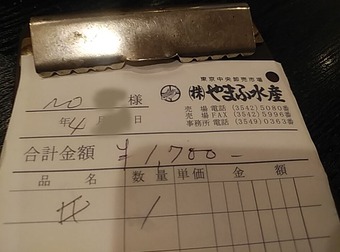 東京中央卸売市場
(株)やまふ水産
売場 電話 (3542) 5080番
売場 FAX (3542) 5996番
事務所 電話 (3549) 0363番
NO 様
年 4 日
合計金額 ¥1,700-
品名 数量 単価 金額
1